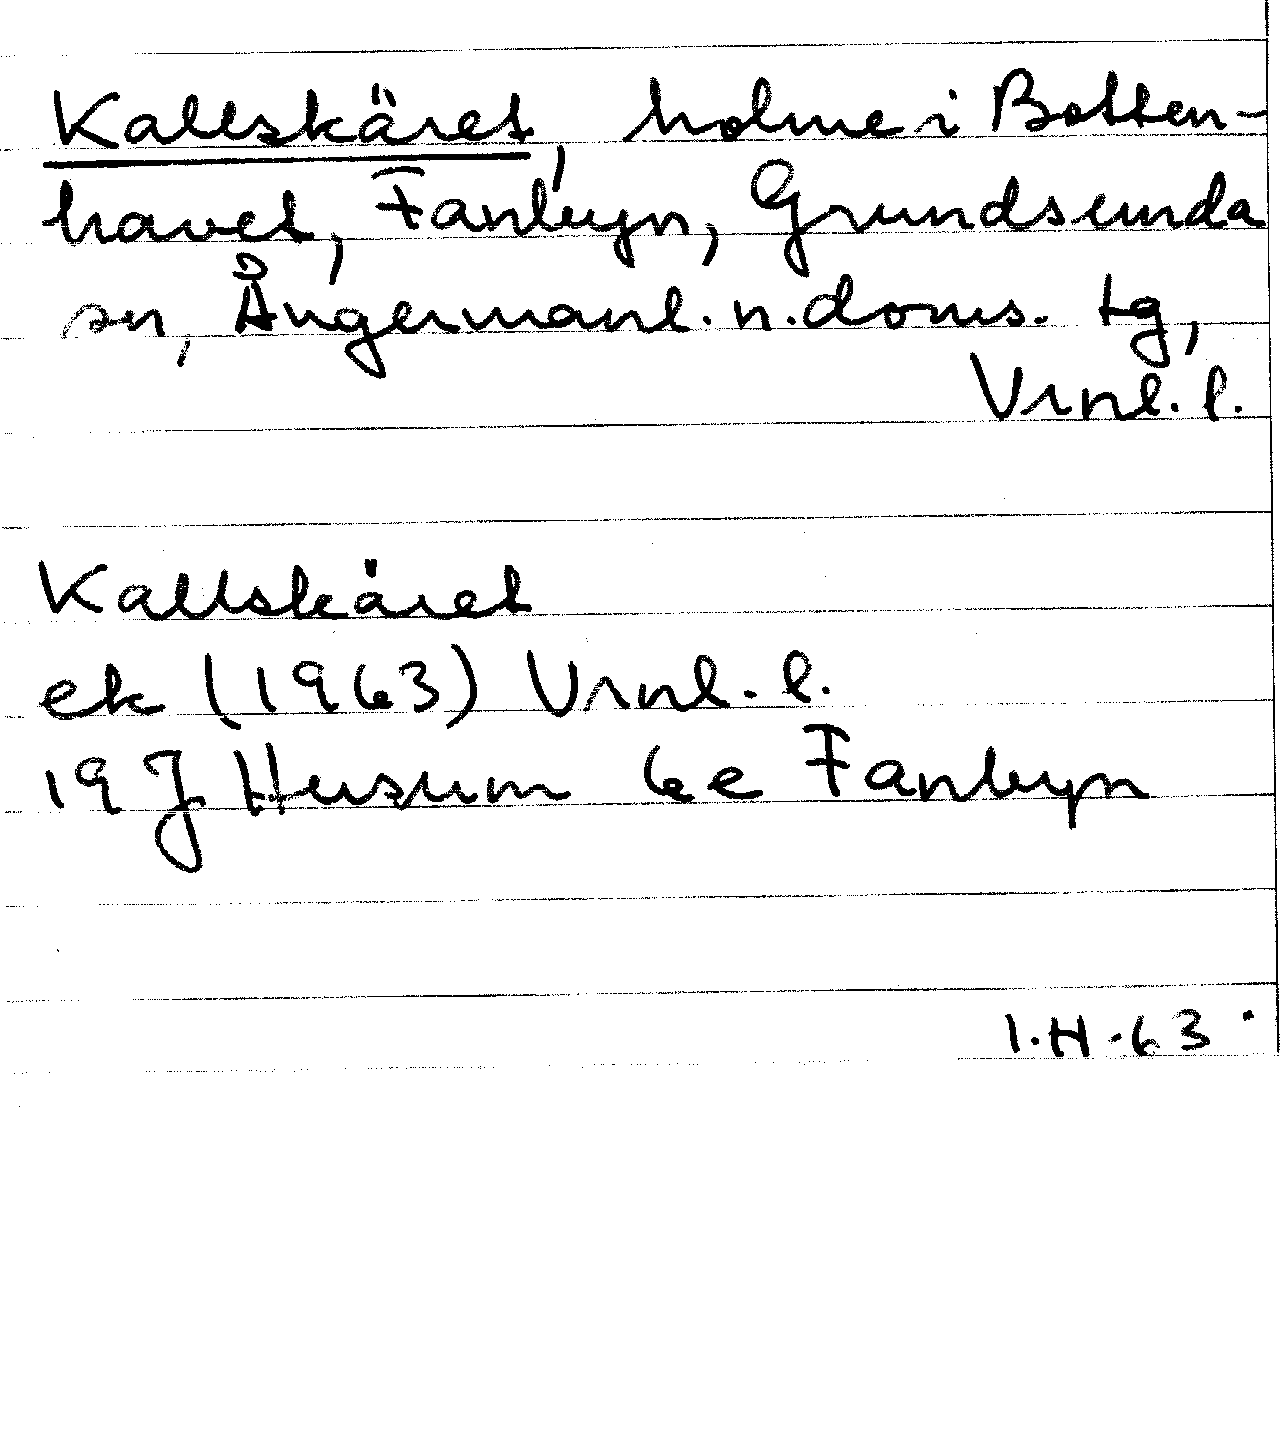 Kallskäret, holme i Botten-
havet, Fanbyn, Grundsunda
sn, Ångermanl. n. doms. tg,
Vrnl. l.
Kallskäret
ek (1963) Vrnl. l.
19 J Husum 6e Fanbyn
I.H. 63